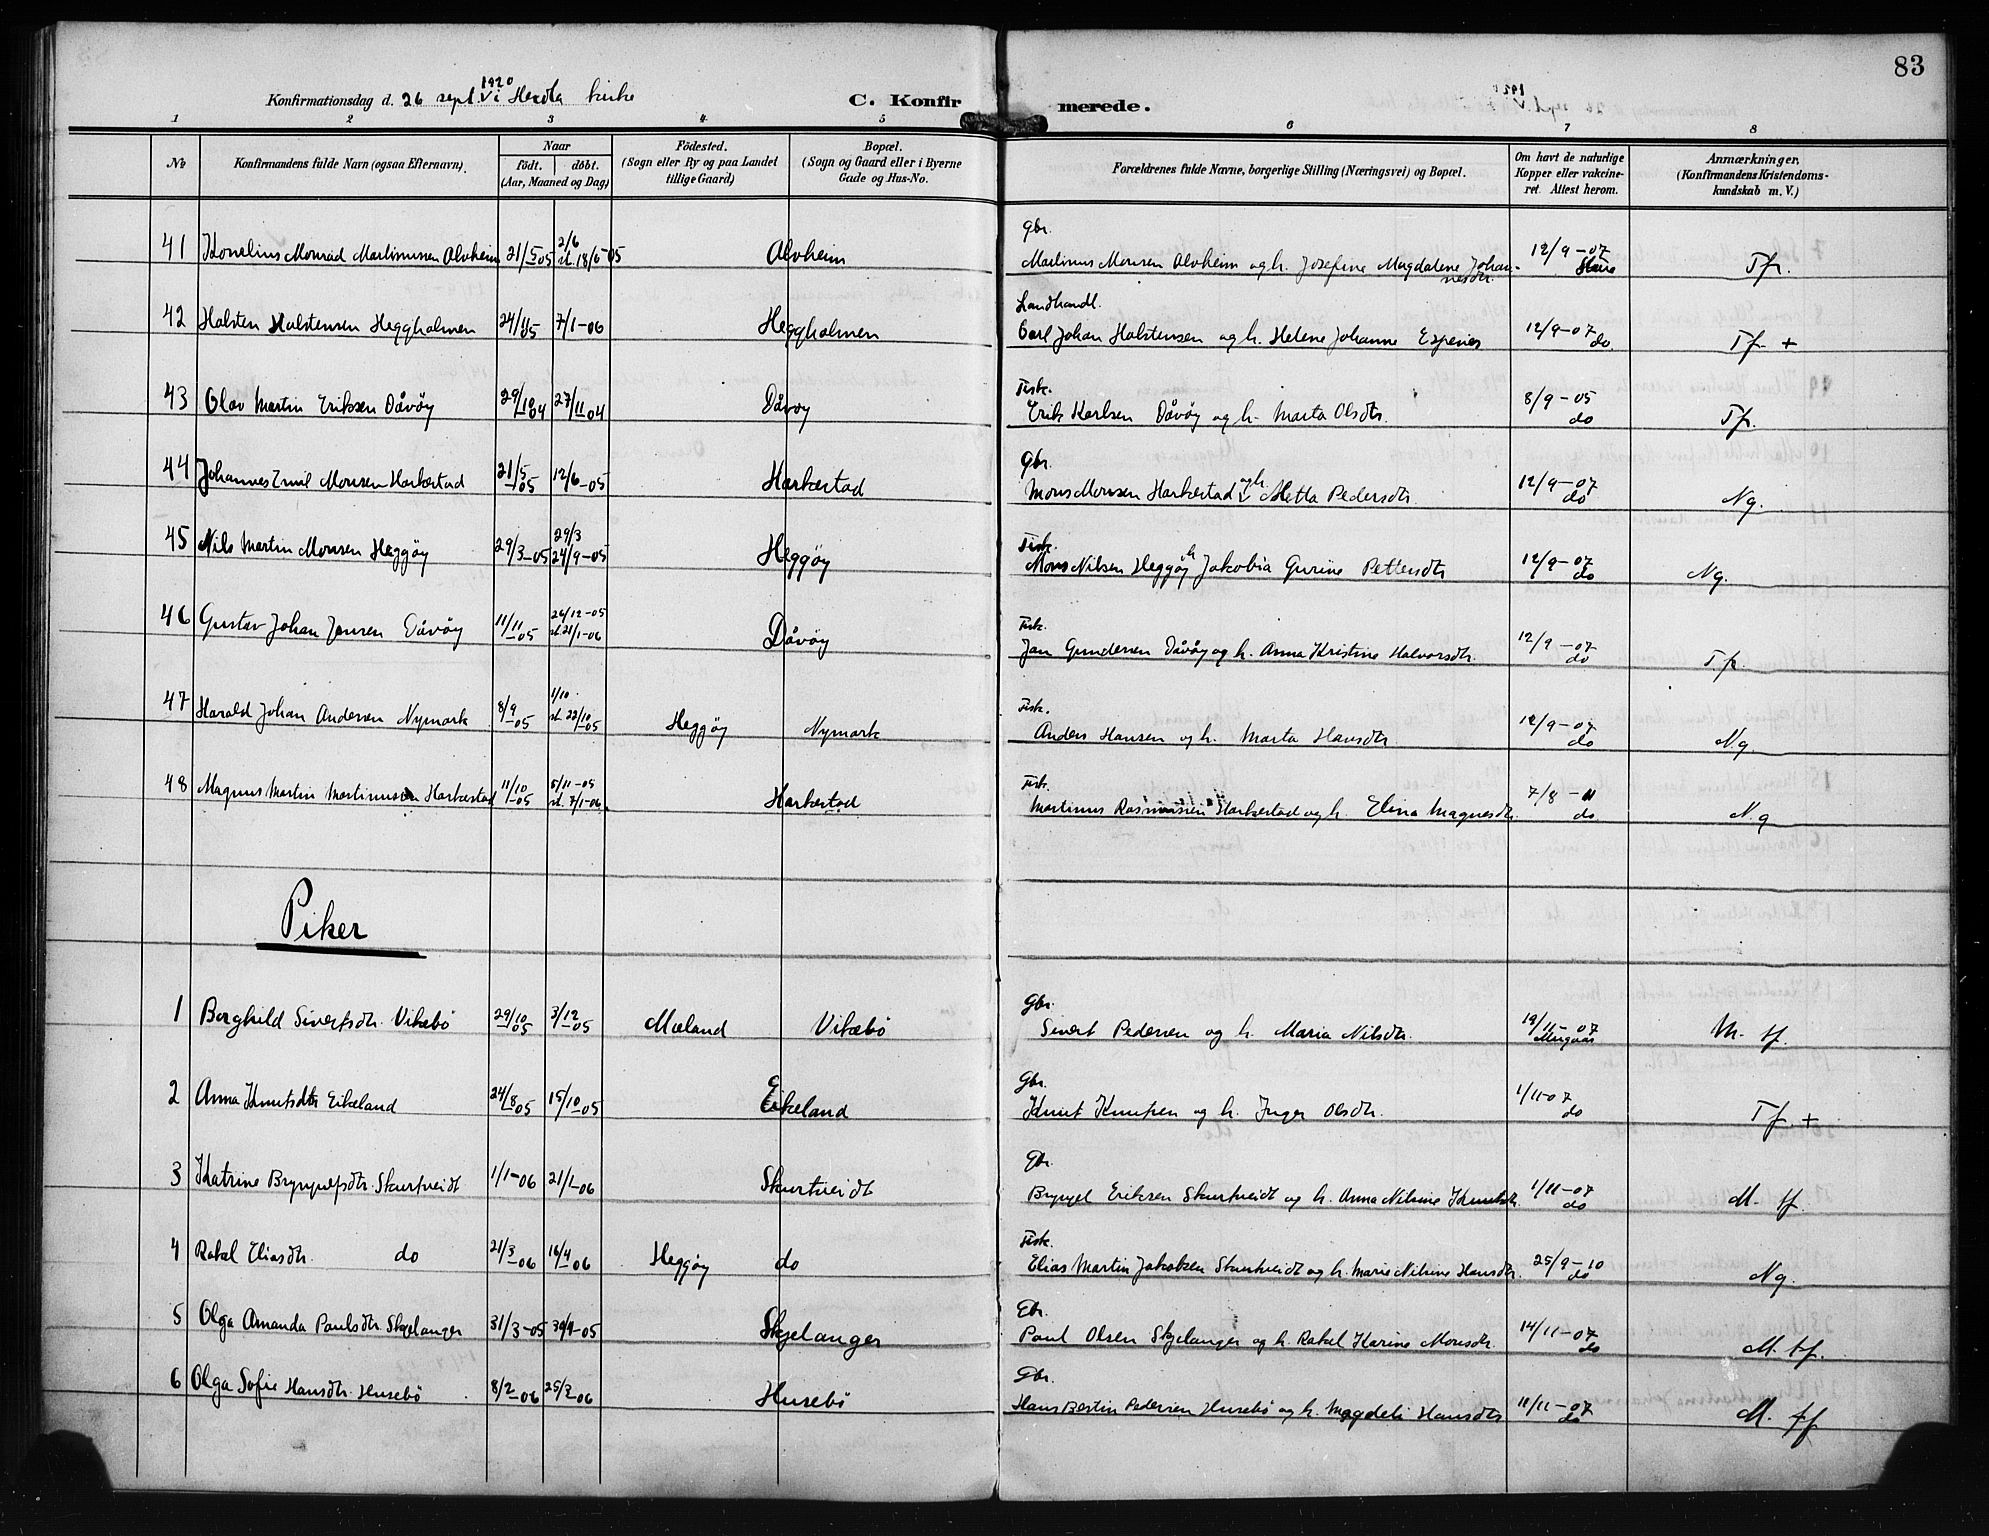 83
Konfirmationsdag d. 26 sept. 1920 i Herdla kirke
C. Konfirmerede.
1 2 3 4 5 6 7 8
No
Konfirmandens fulde Navn (ogsaa Efternavn).
Naar
födt. döbt.
(Aar, Maaned og Dag)
Födested.
(Sogn eller By og paa Landet tillige Gaard)
Bopæl.
(Sogn og Gaard eller i Byerne Gade og Hus-No.
Forældrenes fulde Navne, borgerlige Stilling (Næringsvei) og Bopæl.
Om havt de naturlige Kopper eller vakcineret. Attest herom.
Anmærkninger.
(Konfirmandens Kristendomskundskab m. V.)
Gbr.
41 Konelius Monrad Martinusen Alvheim 21/5 05 2/6 st. 18/6-05 Alvheim Martinus Monsen Alvheim og h. Josefine Magdalene Johannesdtr. 12/9-07 Tfr.
Landhandl.
42 Halsten Halstensen Heggholmen 7/1-06 Heggholmen Carl Johan Halstensen og h. Helene Johanne Espenes 12/9-07 do Tfr +
Fisk.
43 Olav Martin Eriksen Dåvøy 29/10 04 27/11 04 Dåvøy Erik Karlsen Dåvøy og h. Marta Olsdtr. 8/9-05 do Tfr.
Gbr.
44 Johannes Emil Monsen Harkestad 21/5 05 12/6-05 Harkestad Mons Monsen Harkestad og h. Metta Pedersdtr. 12/9-07 do Ng.
Fisk.
45 Nils Martin Monsen Heggöy 29/3-05 29/3 24/9-05 Heggöy Mons Nilsen Heggöy h Jakobia Gurine Pettersdtr 12/9-07 do Ng.
Fisk.
46 Gustav Johan Jansen Dåvøy 11/11-05 26/12-05 st. 21/1-06 Dåvøy Jan Gundersen Dåvøy og h. Anna Kristine Halvorsdtr. 12/9-07 do Tfr.
Fisk.
47 Harald Johan Andersen Nymark 8/9-05 1/10 st. 22/10-05 Heggöy Nymark Anders Hansen og h. Marta Hansdtr 12/9-07 do Ng.
Fisk.
48 Magnus Martin Martinusen Harkestad 11/10-05 5/11-05 st. 7/1-06. Harkestad Martinus Rasmussen Harkestad og h. Elina Magnesdtr. 7/8-11 do Ng
Piker
Gbr.
1 Borghild Sivertsdtr. Vikebö 29/10 05 3/12-05 Mæland Vikebö Sivert Pedersen og h. Maria Nilsdtr. 19/11-07 M. tf.
Gbr.
2 Anna Knutsdtr Eikeland 24/8 05 15/10-05 Eikeland Knut Knutsen og h. Inger Olsdtr. 1/11-07 do Tf. +
Gbr.
3 Katrine Bryngelsdtr. Skurtveidt 1/1-06 21/1-06 Skurtveidt Bryngel Eriksen Skurtveidt og h. Anna Nilsine Knutsdtr. 1/11-07 do M. tf.
Fisk.
4 Rakel Eliasdtr. do 21/3-06 16/4-06 Heggöy do Elias Martin Jakobsen Skurtveidt og h. Marie Nilsine Hansdtr. 25/9-10 do Ng.
Gbr.
5 Olga Amanda Paulsdtr. Skjelanger 31/3-05 30/4-05 Skjelanger Paul Olsen Skjelanger og h. Rakel Karine Monsdtr. 14/11-07 do M. tf.
Gbr.
6 Olga Sofie Hansdtr. Husebö 8/2-06 25/2-06 Husebö Hans Bertin Pedersen Husebö og h. Magdeli Hansdtr 11/11-07 do M. tf